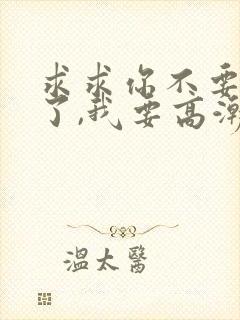 求求你不要
了,我要高潮
温太醫